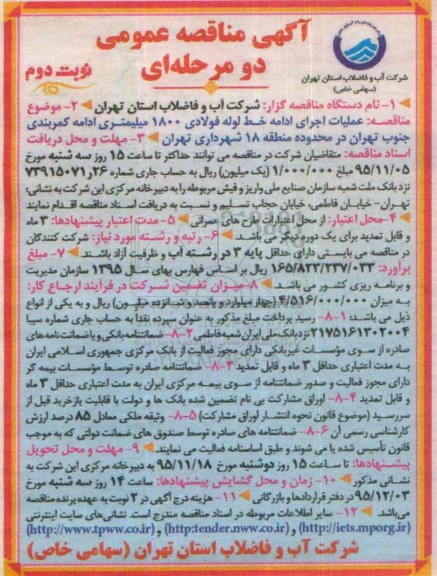 آگهی مناقصه عمومی
دو مرحله‌ای
نوبت دوم
شرکت آب و فاضلاب استان تهران
(سهامی خاص)
۱- نام دستگاه مناقصه گزار: شرکت آب و فاضلاب استان تهران ۲- موضوع
مناقصه: عملیات اجرای ادامه خط لوله فولادی ۱۸۰۰ میلیمتری ادامه کمربندی
جنوب تهران در محدوده منطقه ۱۸ شهرداری تهران ۳- مهلت و محل دریافت
اسناد مناقصه: متقاضیان شرکت در مناقصه می توانند حداکثر تا ساعت ۱۵ روز سه شنبه مورخ
۹۵/۱۱/۰۵ مبلغ ۱/۰۰۰/۰۰۰ (یک میلیون) ریال به حساب جاری شماره ۷۳۹۱۵۰۷۱٫۲۶
نزد بانک ملت شعبه سازمان صنایع ملی واریز و فیش مربوطه را به دبیرخانه مرکزی این شرکت به نشانی:
تهران- خیابان فاطمی- خیابان حجاب تسلیم و نسبت به دریافت اسناد مناقصه اقدام نمایند
۴- محل اعتبار: از محل اعتبارات طرح های عمرانی ۵- مدت اعتبار پیشنهادها: ۳ ماه
و قابل تمدید برای یک دوره دیگر می باشد. ۶- رتبه و رشته مورد نیاز: شرکت کنندگان
در مناقصه می بایستی دارای حداقل پایه ۳ در رشته آب و ظرفیت آزاد باشند. ۷- مبلغ
برآورد: ۱۶۵/۸۲۳/۲۳۷/۰۳۳ ریال بر اساس فهارس بهای سال ۱۳۹۵ سازمان مدیریت
و برنامه ریزی کشور می باشد. ۸- میزان تضمین شرکت در فرآیند ارجاع کار:
به میزان ۴/۵۱۶/۰۰۰/۰۰۰ (چهار میلیارد و پانصد و شانزده میلیون) ریال و به یکی از انواع
ذیل می باشد: ۸-۱- رسید پرداخت مبلغ مذکور به عنوان سپرده نقدا به حساب جاری شماره سیبا
۲۱۷۵۱۶۱۳۰۲۰۰۴ نزد بانک ملی ایران شعبه فاطمی ۸-۲- ضمانتنامه بانکی و یا ضمانت نامه های
صادره از سوی مؤسسات غیربانکی دارای مجوز فعالیت از بانک مرکزی جمهوری اسلامی ایران
به مدت اعتباری حداقل ۳ ماه و قابل تمدید ۸-۳- ضمانتنامه صادره توسط مؤسسات بیمه گر
دارای مجوز فعالیت و صدور ضمانتنامه از سوی بیمه مرکزی ایران به مدت اعتباری حداقل ۳ ماه
و قابل تمدید ۸-۴- اوراق مشارکت بی نام تضمین شده بانک ها و دولت با قابلیت بازخرید قبل از
سررسید (موضوع قانون نحوه انتشار اوراق مشارکت) ۸-۵- وثیقه ملکی معادل ۸۵ درصد ارزش
کارشناسی رسمی آن ۸-۶- ضمانتنامه های صادره توسط صندوق های ضمانت دولتی که به موجب
قانون تأسیس شده یا می شوند و طبق اساسنامه فعالیت می نمایند. ۹- مهلت و محل تحویل
پیشنهادها: تا ساعت ۱۵ روز دوشنبه مورخ ۹۵/۱۱/۱۸ به دبیرخانه مرکزی این شرکت به
نشانی مذکور ۱۰- زمان و محل گشایش پیشنهادها: ساعت ۱۴ روز سه شنبه مورخ
۹۵/۱۲/۰۳ در دفتر قراردادها و بازرگانی ۱۱- هزینه درج آگهی در ۲ نوبت به عهده برنده مناقصه
می باشد. ۱۲- سایر اطلاعات مربوطه در اسناد مناقصه مندرج است. نشانی های سایت اینترنتی
(http://iets.mporg.ir) و (http:tender.nww.co.ir) و (http://www.tpww.co.ir)
شرکت آب و فاضلاب استان تهران (سهامی خاص)